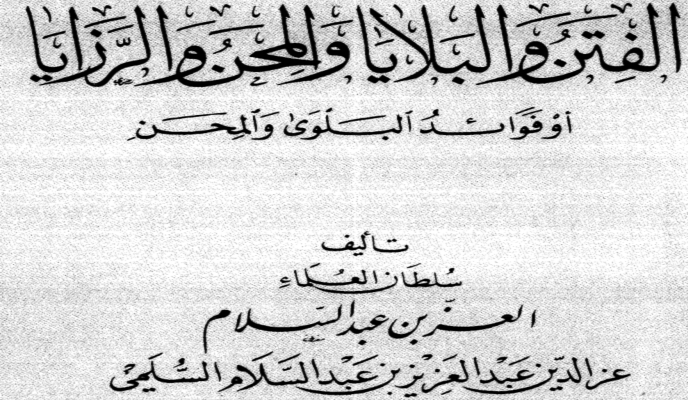 الفِتَنُ وَالبَلايَا وَالمِحَنُ وَالرَّزَايَا
أوْ فَوَائِدُ البَلْوَىٰ وَالمِحَنِ
تأليف
سُلطان العُلَمَاءِ
العز بن عبد السَّلام
عز الدّين عَبْد العَزيْز بن عَبْد السَّلَام السُّلَمِيّ